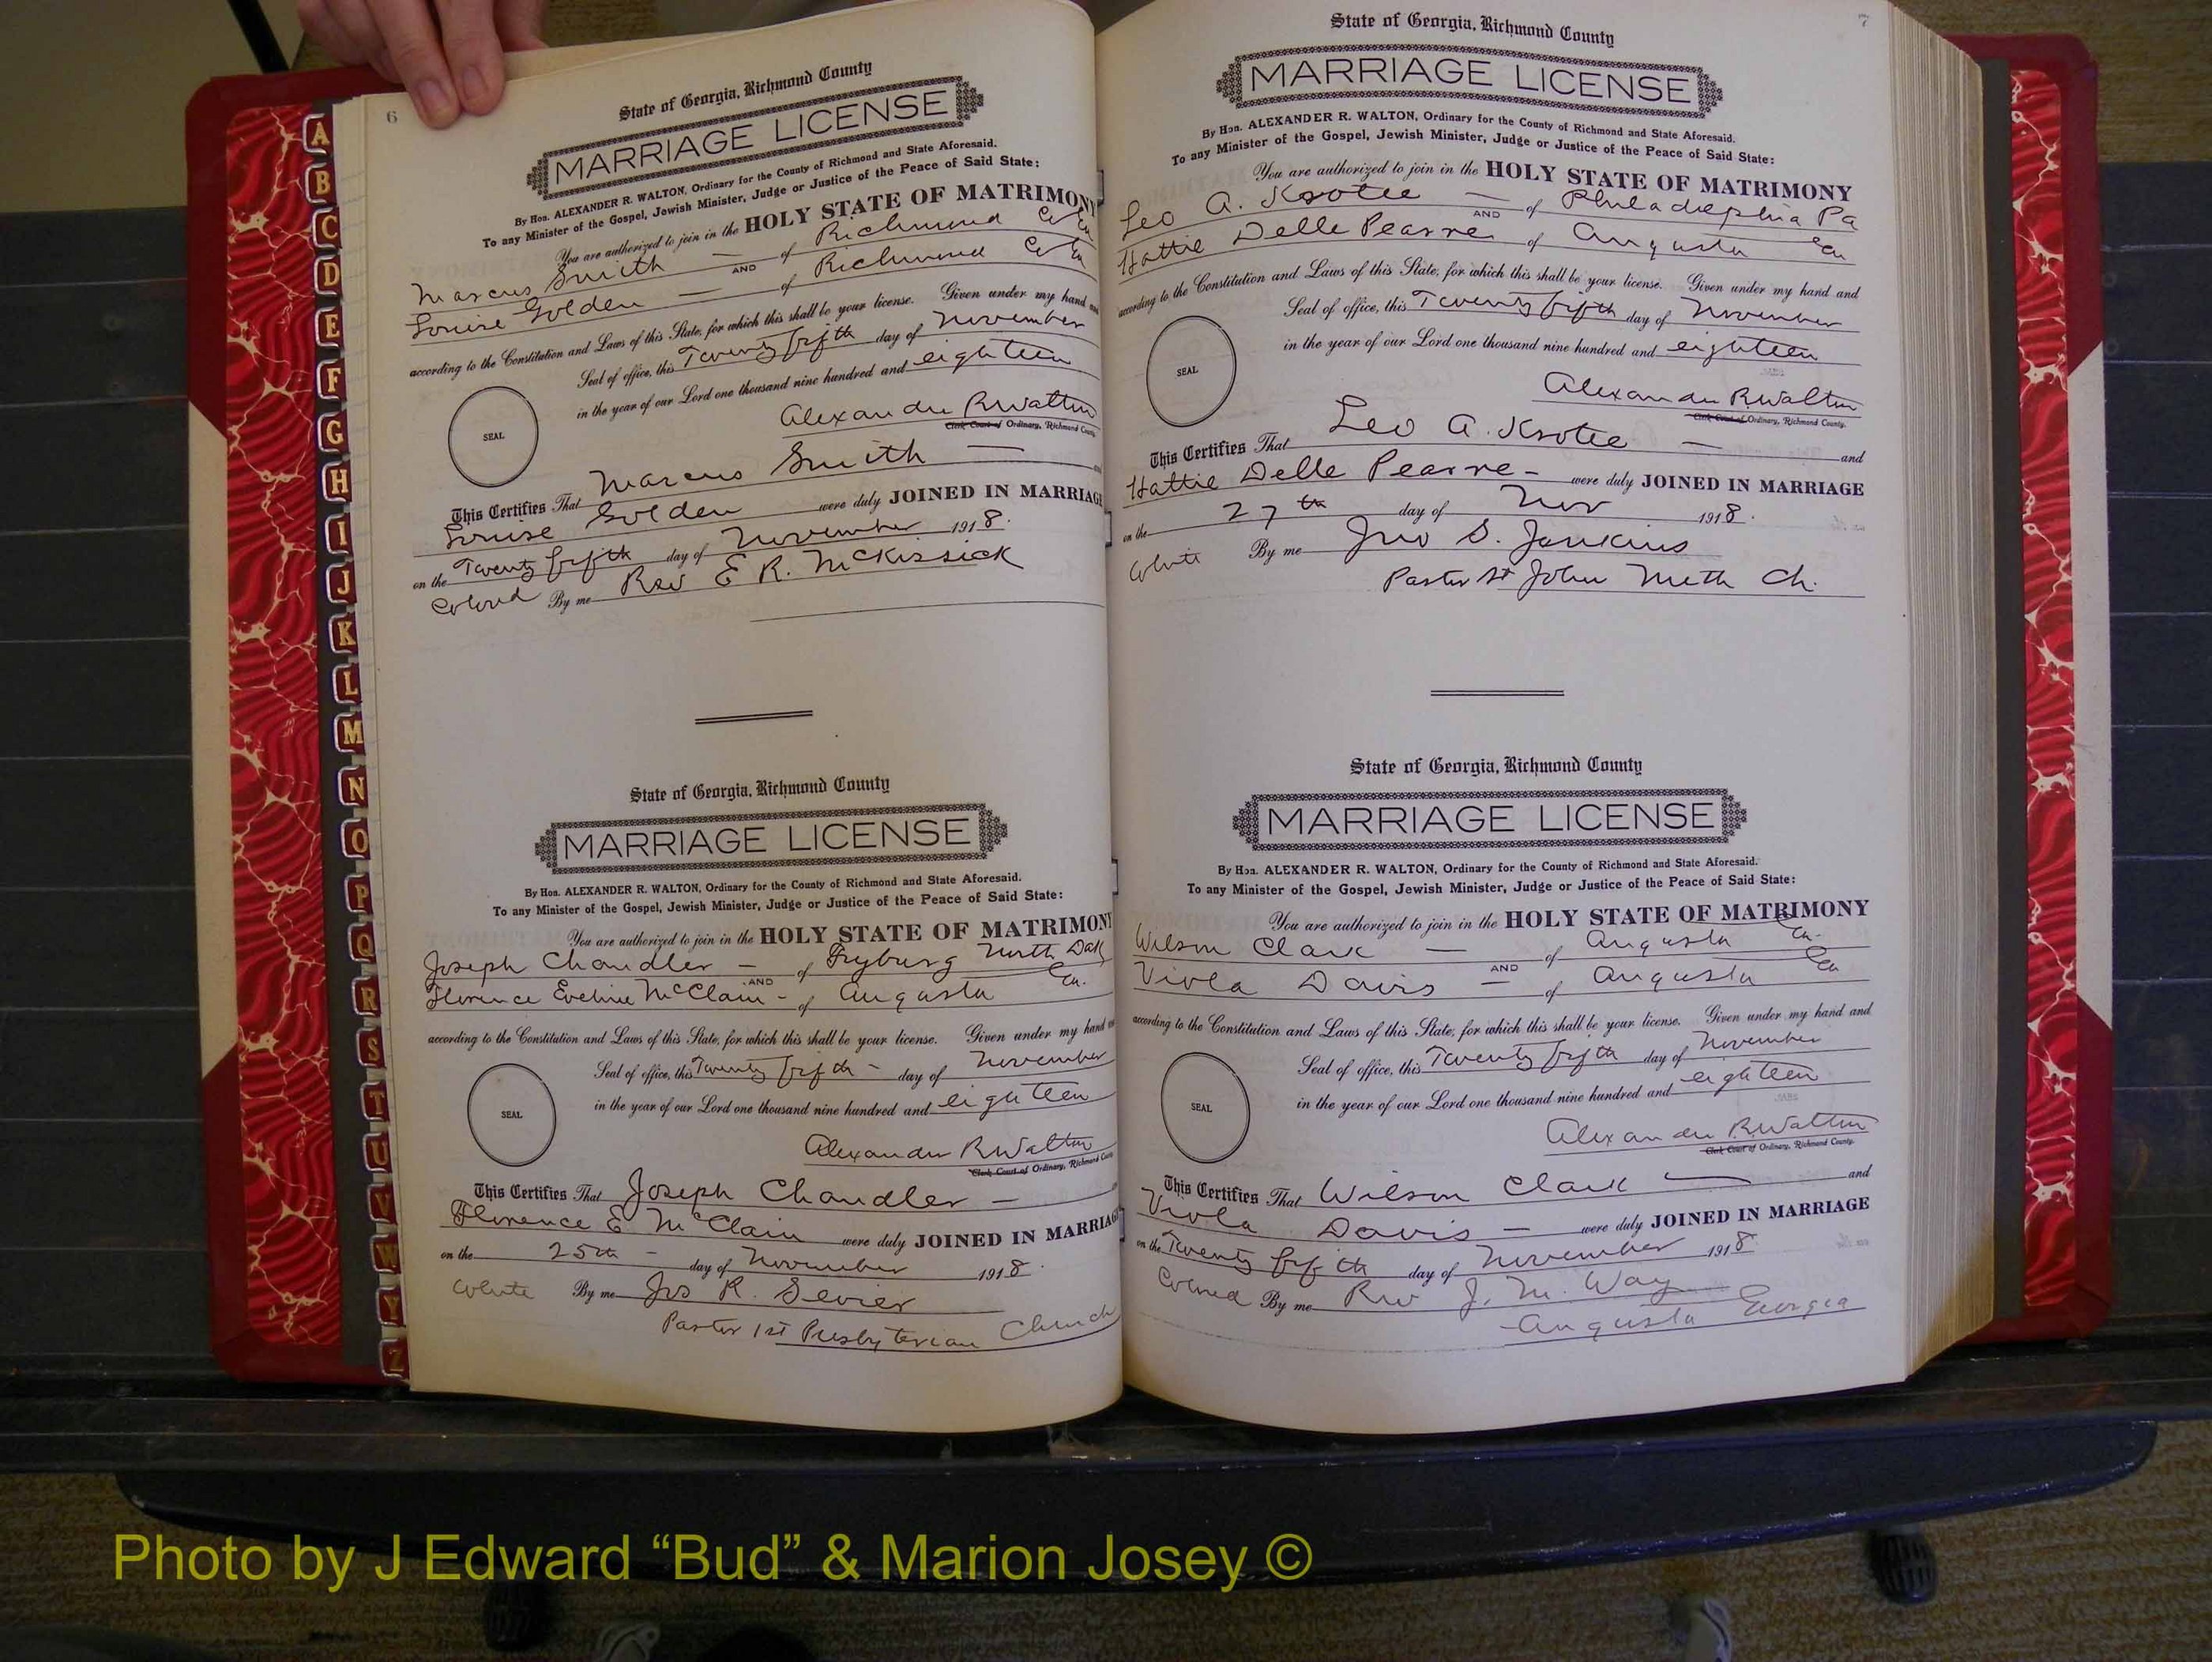 6
State of Georgia, Richmond County
MARRIAGE LICENSE
By Hon. ALEXANDER R. WALTON, Ordinary for the County of Richmond and State Aforesaid.
To any Minister of the Gospel, Jewish Minister, Judge or Justice of the Peace of Said State:
You are authorized to join in the HOLY STATE OF MATRIMONY
Marcus Smith — of Richmond Co Ga
AND
Louise Golden — of Richmond Co Ga
according to the Constitution and Laws of this State, for which this shall be your license. Given under my hand and
Seal of office, this Twenty fifth day of November
in the year of our Lord one thousand nine hundred and eighteen
SEAL
Alexander R Walton
Clerk Court of Ordinary, Richmond County.
This Certifies That Marcus Smith — and
Louise Golden were duly JOINED IN MARRIAGE
on the Twenty fifth day of November 1918.
Colored By me Rev E R. McKissick
State of Georgia, Richmond County
MARRIAGE LICENSE
By Hon. ALEXANDER R. WALTON, Ordinary for the County of Richmond and State Aforesaid.
To any Minister of the Gospel, Jewish Minister, Judge or Justice of the Peace of Said State:
You are authorized to join in the HOLY STATE OF MATRIMONY
Joseph Chandler — of Fryburg North Dak
AND
Florence Eveline McClain - of Augusta Ga.
according to the Constitution and Laws of this State, for which this shall be your license. Given under my hand and
Seal of office, this Twenty fifth - day of November
in the year of our Lord one thousand nine hundred and eighteen
SEAL
Alexander R Walton
Clerk Court of Ordinary, Richmond County
This Certifies That Joseph Chandler —
Florence E McClain were duly JOINED IN MARRIAGE
on the 25th - day of November 1918.
White By me Jos R. Sevier
Pastor 1st Presbyterian Church
7
State of Georgia, Richmond County
MARRIAGE LICENSE
By Hon. ALEXANDER R. WALTON, Ordinary for the County of Richmond and State Aforesaid.
To any Minister of the Gospel, Jewish Minister, Judge or Justice of the Peace of Said State:
You are authorized to join in the HOLY STATE OF MATRIMONY
Leo A. Krotee — of Philadelphia Pa
AND
Hattie Delle Pearre of Augusta Ga
according to the Constitution and Laws of this State, for which this shall be your license. Given under my hand and
Seal of office, this Twenty fifth day of November
in the year of our Lord one thousand nine hundred and eighteen
SEAL
Alexander R. Walton
Clerk Court of Ordinary, Richmond County.
This Certifies That Leo A. Krotee — and
Hattie Delle Pearre - were duly JOINED IN MARRIAGE
on the 27th day of Nov 1918.
White By me Jno S. Jenkins
Pastor St John Meth Ch.
State of Georgia, Richmond County
MARRIAGE LICENSE
By Hon. ALEXANDER R. WALTON, Ordinary for the County of Richmond and State Aforesaid.
To any Minister of the Gospel, Jewish Minister, Judge or Justice of the Peace of Said State:
You are authorized to join in the HOLY STATE OF MATRIMONY
Wilson Clark — of Augusta Ga.
AND
Viola Davis — of Augusta Ga
according to the Constitution and Laws of this State, for which this shall be your license. Given under my hand and
Seal of office, this Twenty fifth day of November
in the year of our Lord one thousand nine hundred and eighteen
SEAL
Alexander R. Walton
Clerk Court of Ordinary, Richmond County.
This Certifies That Wilson Clark — and
Viola Davis — were duly JOINED IN MARRIAGE
on the Twenty fifth day of November 1918
Colored By me Rev J. M. Way
Augusta Georgia
A
B
C
D
E
F
G
H
I
J
K
L
M
N
O
P
Q
R
S
T
U
V
W
Y
Z
Photo by J Edward “Bud” & Marion Josey ©